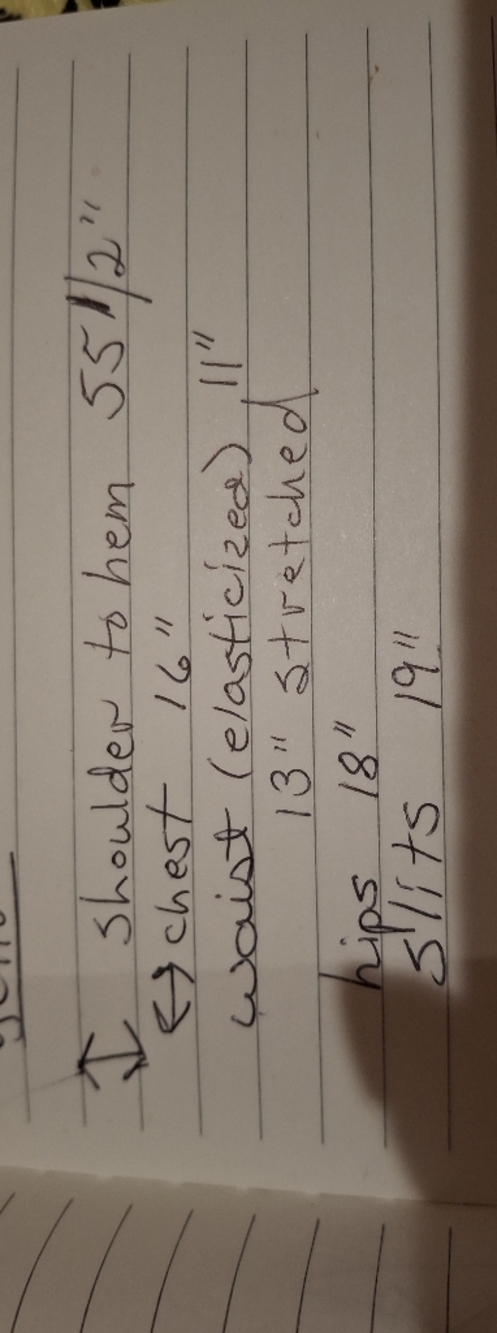 ↕ shoulder to hem 55 1/2"
↔ chest 16"
waist (elasticized) 11"
13" stretched
hips 18"
slits 19"